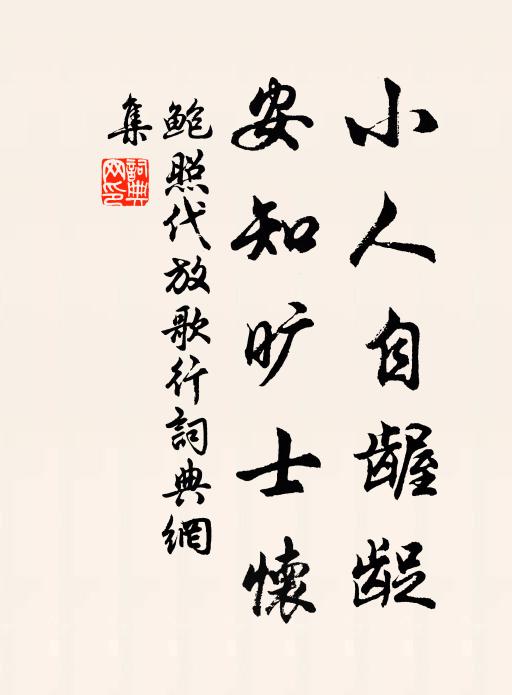 小人自龌龊
安知旷士懷
鲍照代放歌行詞典網
集
詞典
网印